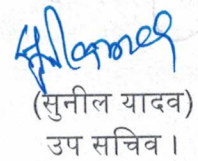 (सुनील यादव)
उप सचिव ।